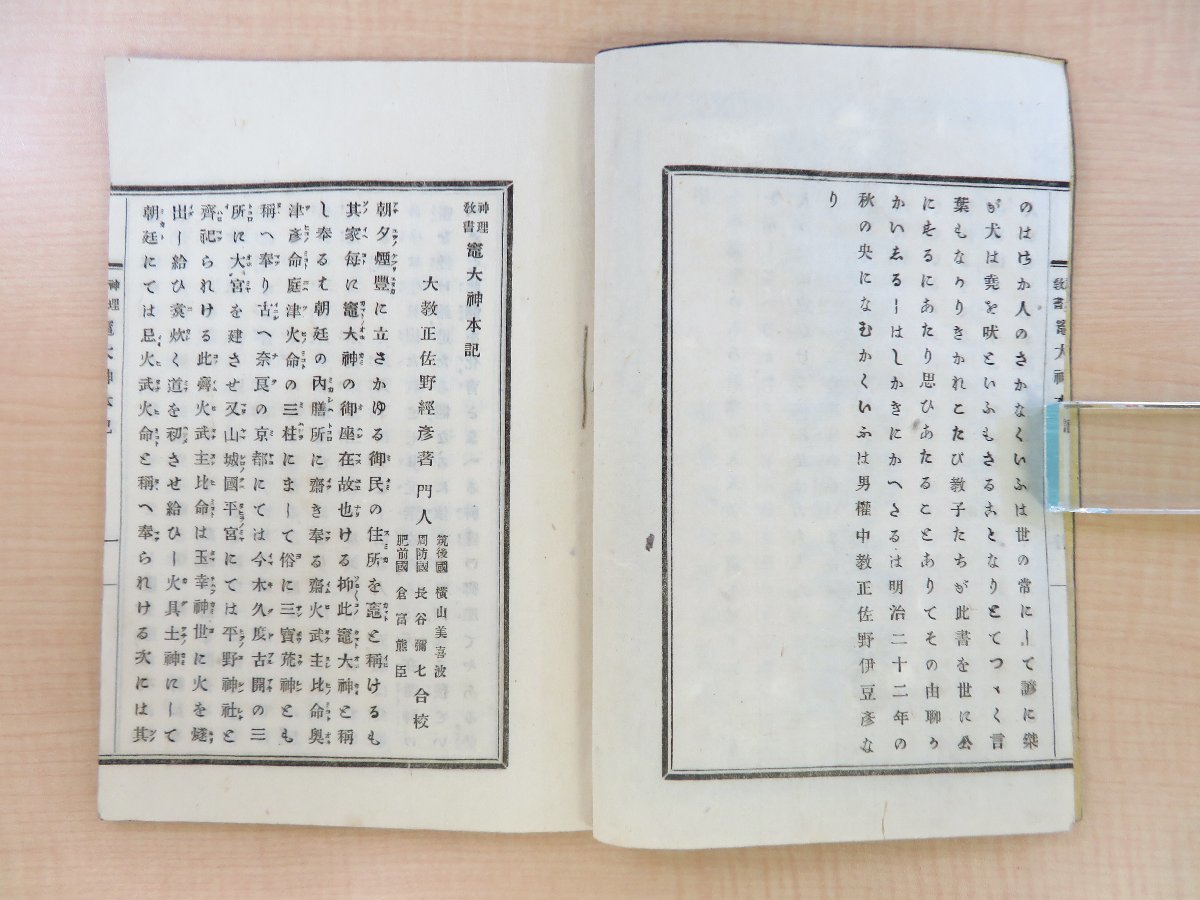 のはほか人のさかなくいふは世の常にして諺に桀
が犬は堯を吠といふもさることなりとてつゝく言
葉もなかりきかれこたび教子たちが此書を世に公
にするにあたり思ひあたることありてその由聊か
かいゑるしはしかきにかへさるは明治二十二年の
秋の央になむかくいふは男權中教正佐野伊豆彦な
り
神理教書 竈大神本記
神理教書 竈大神本記
大教正佐野經彥著 門人 筑後國 橫山美喜波 周防國 長谷彌七 肥前國 倉富熊臣 合校
朝夕煙豐に立さかゆる御民の住所を竈と稱けるも
其家每に竈大神の御座在故也ける抑此竈大神と稱
し奉るは朝廷の內膳所に齋き奉る齋火武主比命奧
津彥命庭津火命の三柱にまして俗に三寶荒神とも
稱へ奉り古へ奈良の京都にては今木久度古開の三
所に大宮を建させ又山城國平宮にては平野神社と
齊祀られける此齊火武主比命は玉幸神世に火を燧
出し給ひ炊く道を初させ給ひし火具土神にして
朝廷にては忌火武火命と稱へ奉られける次には其
神理 竈大神本記